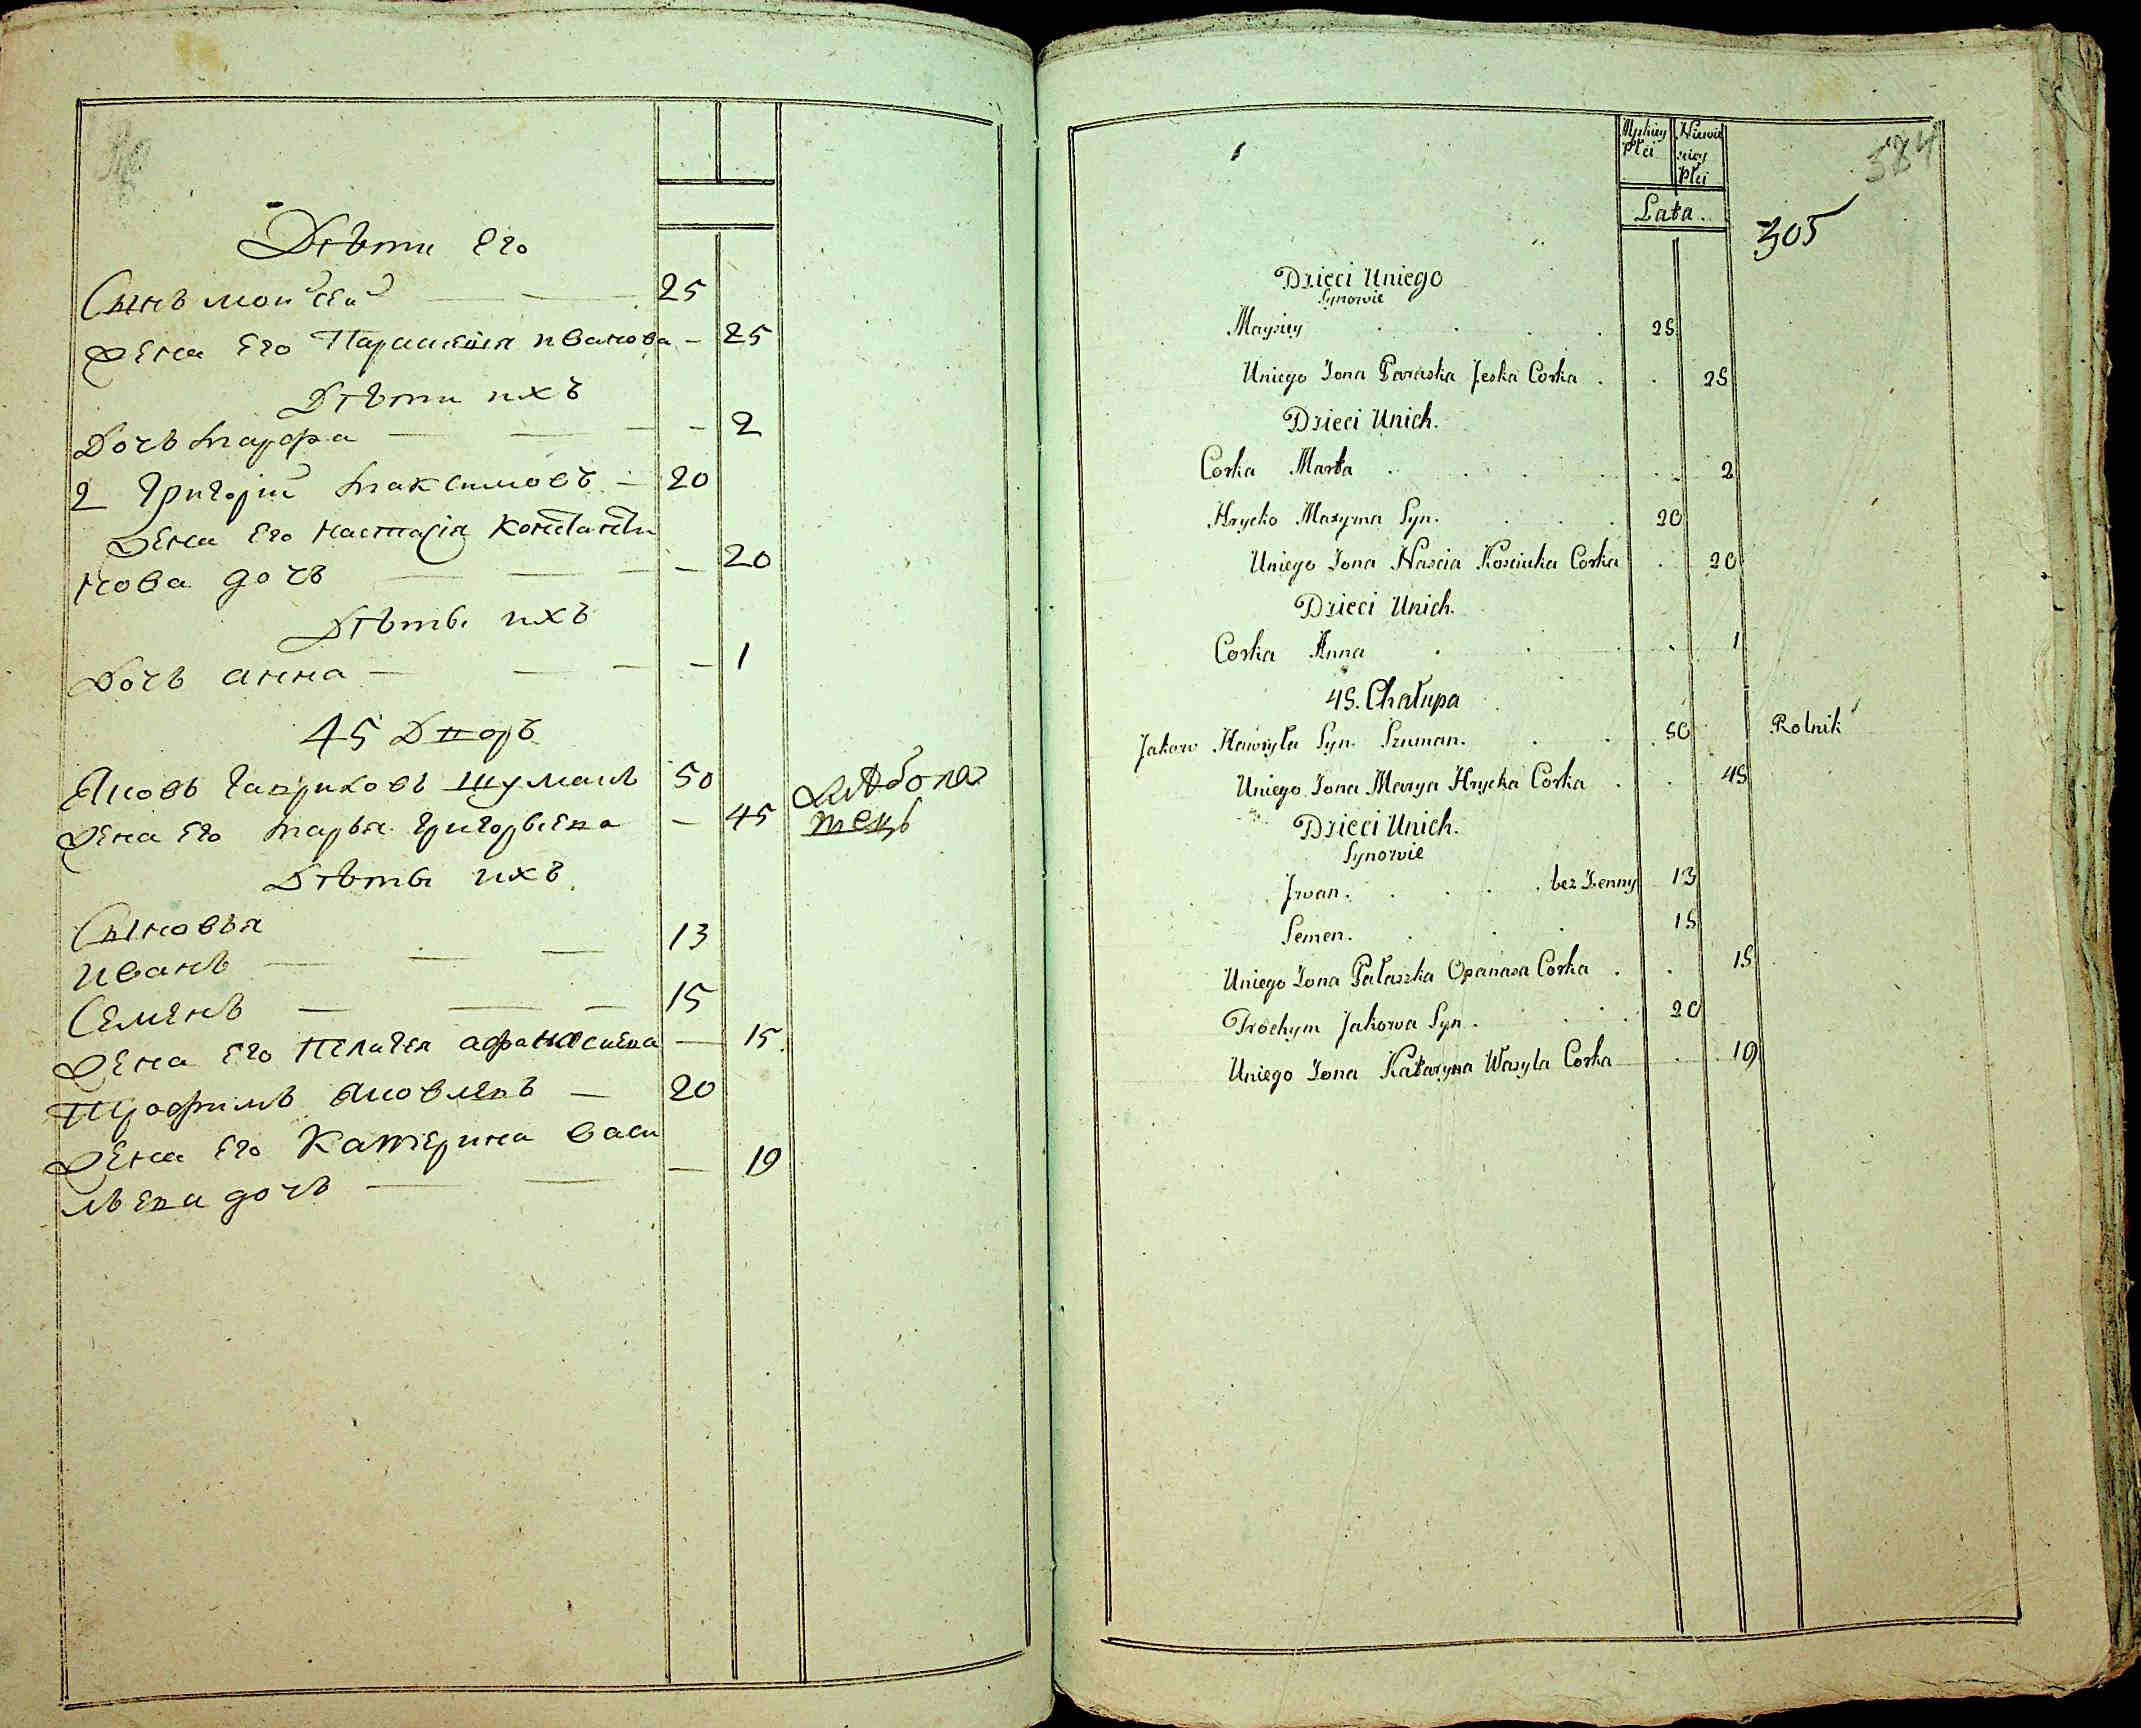 Дѣти его
Сынъ мойсей 25
Жена его Параскевія иванова — 25
Дѣти ихъ
Дочь марфа — 2
2 Григорій максимовъ — 20
Жена его настасія константи
нова дочь — 20
Дѣты ихъ
Дочь анна — 1
45 Дворъ
Яковъ гавриловъ шуманъ 50
хлѣбопа
шецъ
Жена его марья григорьева — 45
Дѣты ихъ
Сыновья
иванъ — 13
Семенъ — 15
Жена его пелагея афанасиева — 15
Трофимъ яковлевъ — 20
Жена его Катерина васи
льева дочь — 19
584
Męskiey Płci Niewieściey Płci
Lata.
305
Dzieci Uniego
Synowie
Moysiey 25
Uniego Żona Paraska Jeska Corka . . 25
Dzieci Unich.
Corka Marta 2
Hrycko Maxyma Syn. 20
Uniego Żona Nascia Kosciuka Corka . 20
Dzieci Unich.
Corka Anna 1
45. Chałupa
Jakow Hawryła Syn. Szuman. 50 Rolnik
Uniego Żona Marya Hrycka Corka . . 45
Dzieci Unich.
Synowie
Jwan. bez Żenny 13
Semen. 15
Uniego Żona Pałaszka Opanasa Corka . . 15
Trochym Jakowa Syn. 20
Uniego Żona Kataryna Wasyla Corka . 19